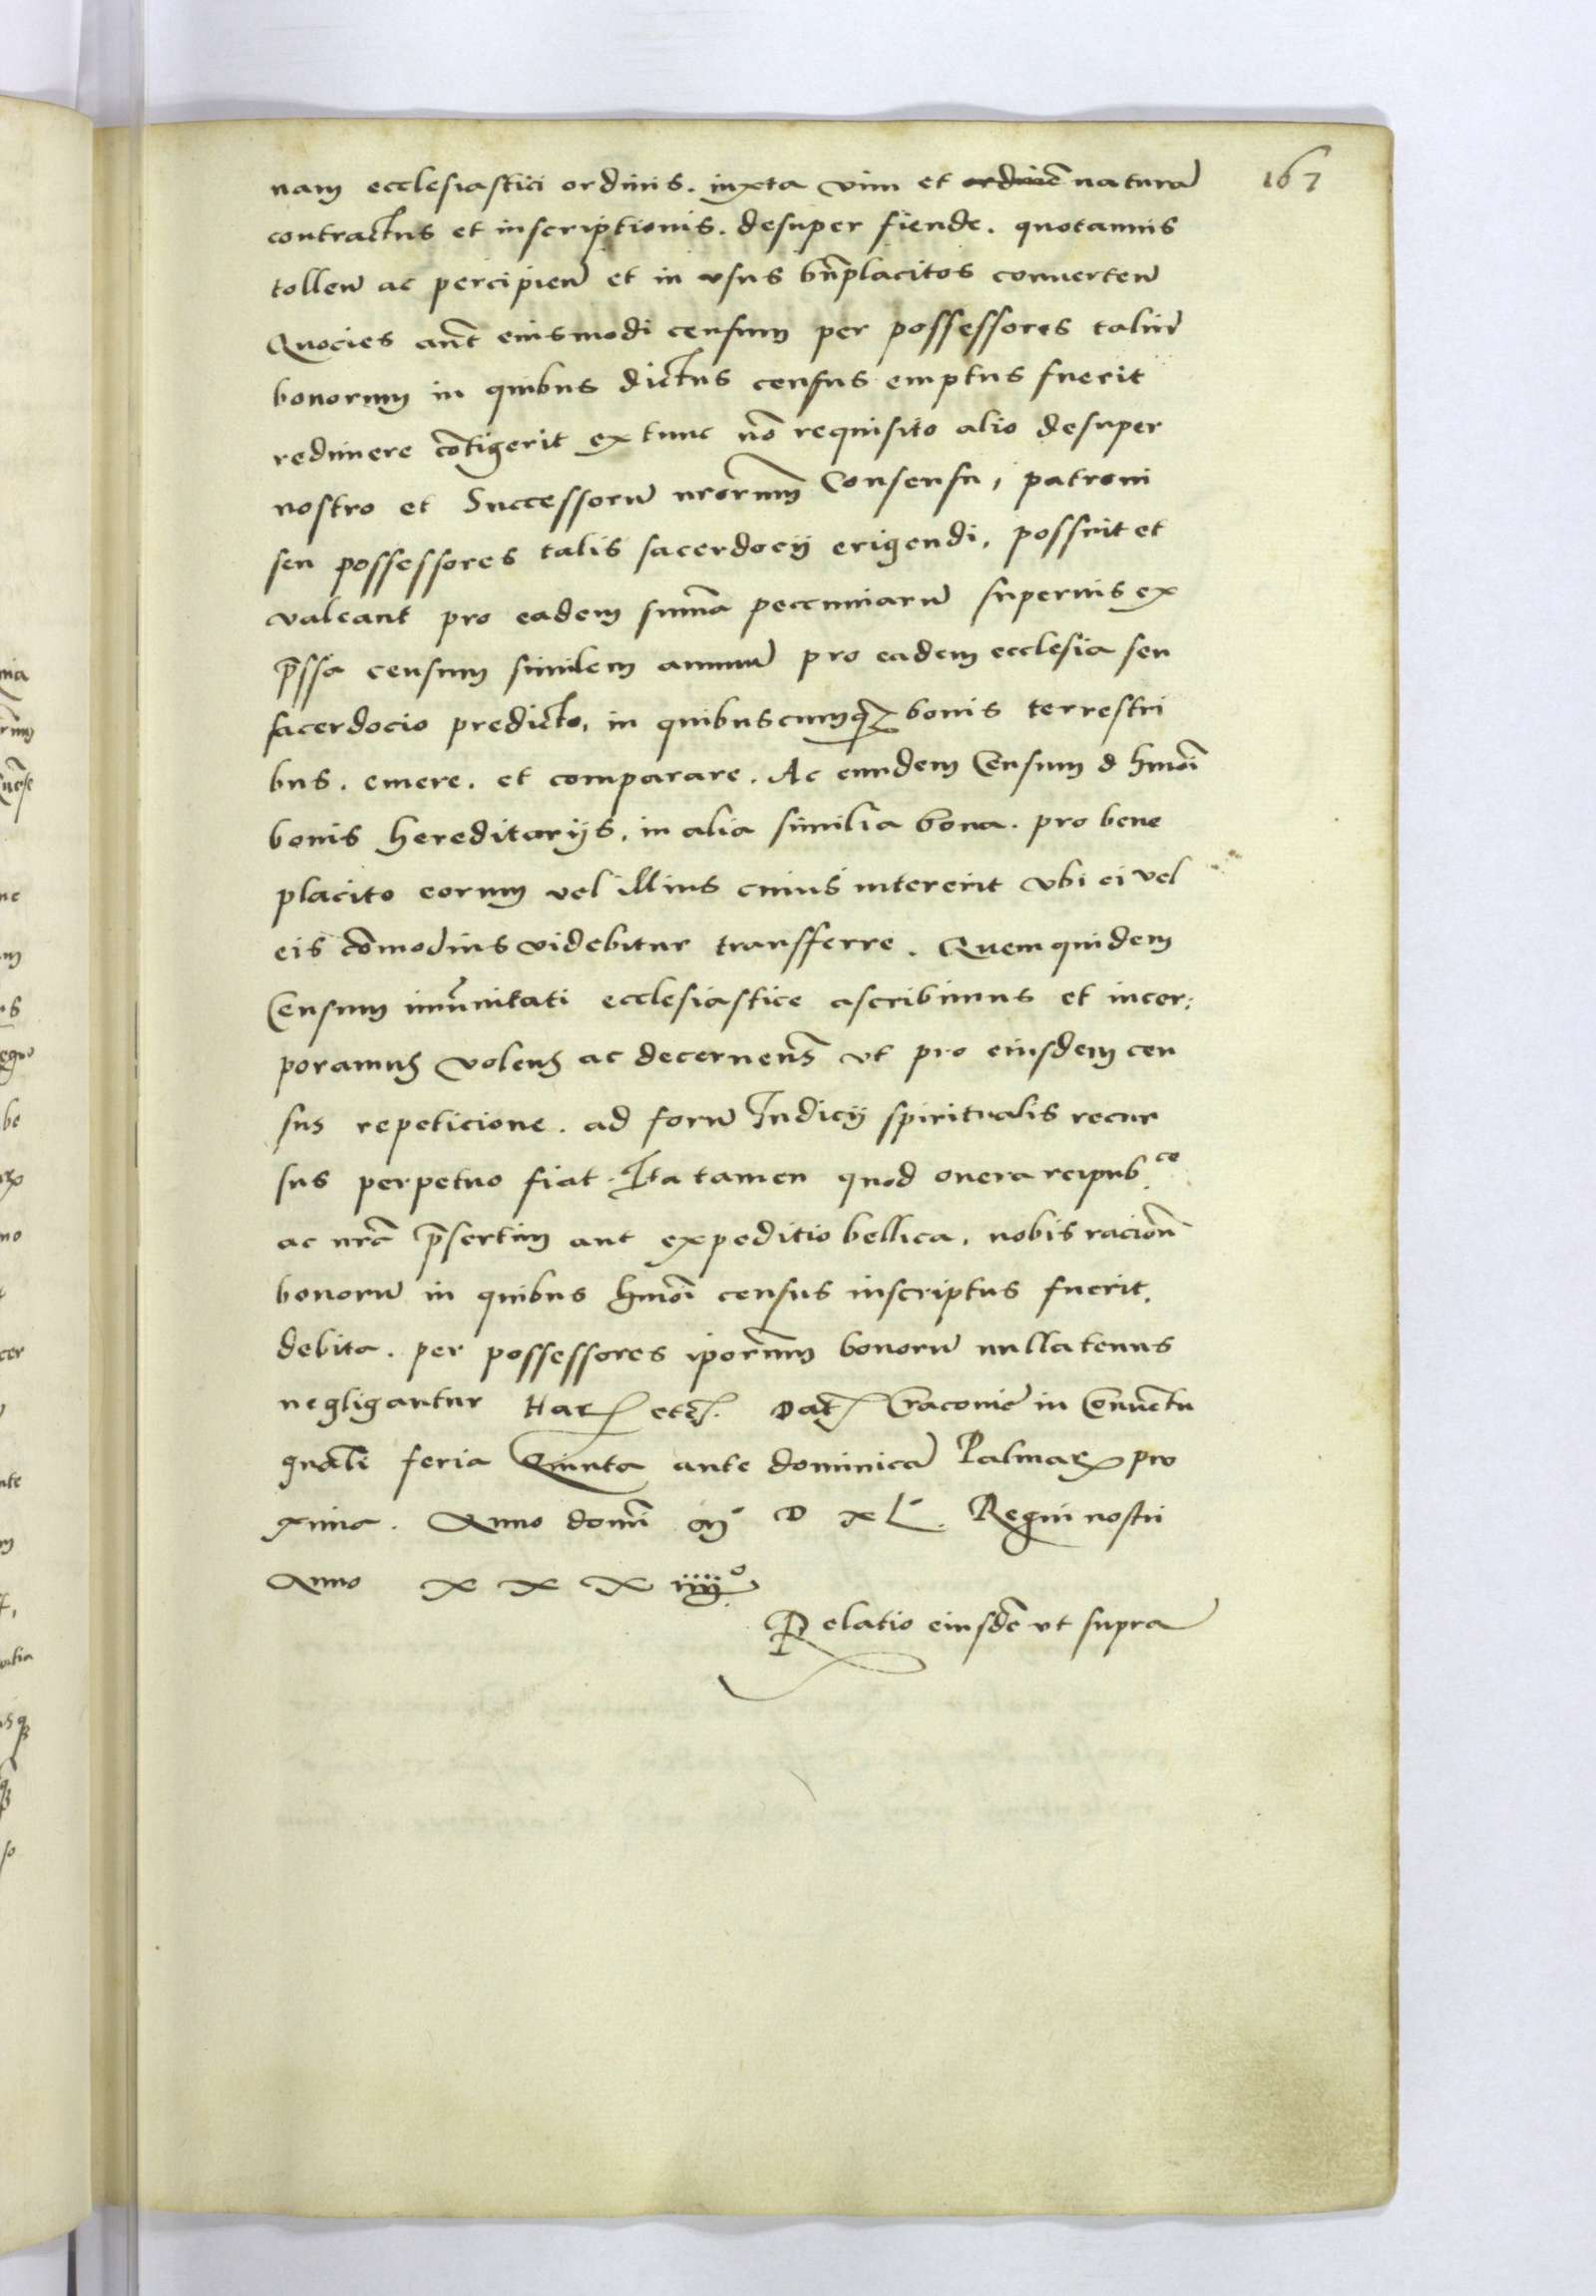 167
nam ecclesiastici ordinis. iuxta vim et ordinē naturā
contractus et inscriptionis. desuper fiende. quotannis
tollen̄ ac percipien̄ et in vsus bn̄placitos conuerten̄
Quocies aūt eiusmodi censum per possessores taliū
bonorum in quibus dictus census emptus fuerit
redimere cōtigerit ex tunc nō requisito alio desuper
nostro et Successorū nrōrum Consensu, patroni
seu possessores talis sacerdocij erigendi, possint et
valeant pro eadem sum̄a peccuniarū superius ex
p̄ssa censum similem annuū pro eadem ecclesia seu
sacerdocio predicto, in quibuscumqȝ bonis terrestri
bus. emere. et comparare. Ac eundem Censum d hmōi
bonis hereditarijs, in alia similia bona. pro bene
placito eorum vel illius cuius intererit vbi ei vel
eis cōmodius videbitur transferre. Quem quidem
Censum im̄unitati ecclesiastice ascribimus et incor:
poramus volens ac decernens̄ vt pro eiusdem cen
sus repeticione. ad forū Iudicij spiritualis recur
sus perpetuo fiat. Ita tamen quod onera reipub.ce
ac nrā p̄sertim aut expeditio bellica, nobis racion̄
bonorū in quibus hmōi census inscriptus fuerit.
debita. per possessores ipōrum bonorū nullatenus
negligantur Harꝝ etc. Datꝭ Cracouie in Conuētu
gnāli feria Quinta ante dominicā Palmaꝝ pro
xima. Anno domī Mº D xLº. Regni nostri
Anno x x x iiijº.
Relatio eiusdē vt supra